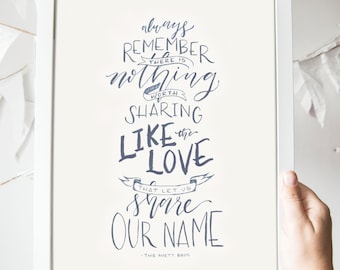 always
REMEMBER
THERE IS
nothing
WORTH
SHARING
LIKE the
LOVE
THAT LET US
share
OUR NAME
- THE AVETT BROS